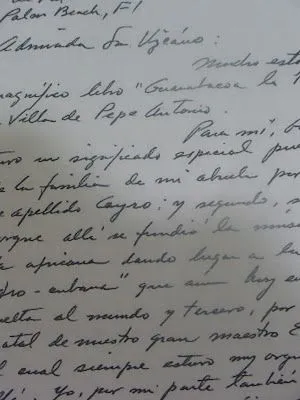 Palm Beach, Fl
Admirada Sra Vizcaíno:
Mucho est
magnífico libro "Guanabacoa la
Villa de Pepe Antonio.
Para mí,
un significado especial pue
la familia de mi abuela por
apellido Cayro; y segundo, s
orque allí se fundió la mús
a africana dando lugar a la
fro-cubana" que aun hoy en
uelta al mundo y tercero, por
natal de nuestro gran maestro E
l cual siempre estuvo muy orgu
Yo, por mi parte también